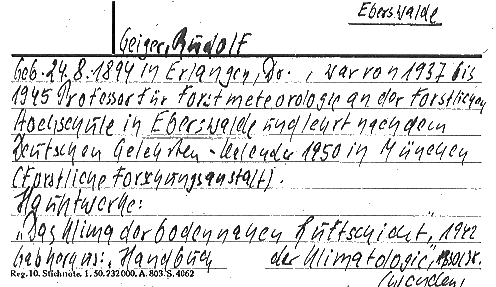 Eberswalde
Geiger, Rudolf
Geb. 24.8.1894 in Erlangen, Dr., war von 1937 bis
1945 Professor für Forstmeteorologie an der Forstlichen
Hochschule in Eberswalde und lehrt nach dem
Deutschen Gelehrten-Kalender 1950 in München
(Forstliche Forschungsanstalt).
Hauptwerke:
"Das Klima der bodennahen Luftschicht", 1942
Gab heraus: "Handbuch der Klimatologie",
Reg. 10. Stichnote. 1. 50. 732000. A. 803 S. 4062
(wenden)